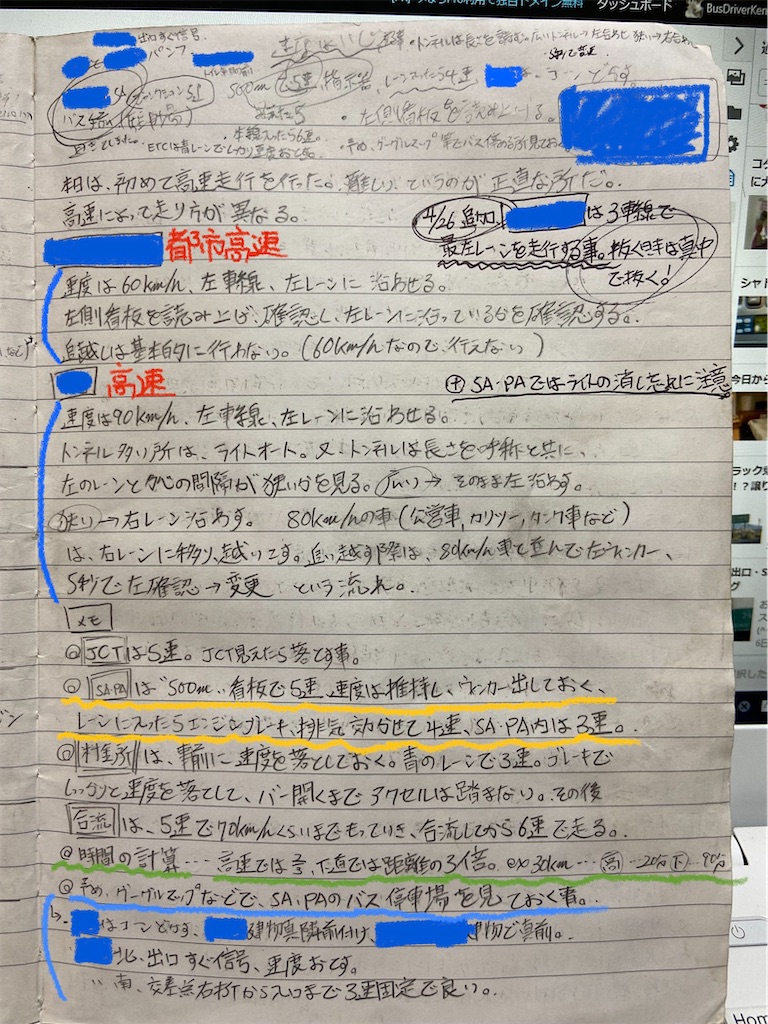 ダッシュボード
BusDriverKen
出口すぐ信号
パンフ
・トンネルは長さを読む。広いトンネル→左合わせ 狭い→右合わせ
500mで5速、指示器、レーン入ったら4速、
は、コーンどかす。
バス停
・左側看板を読み上げる。
・本線入ったら6速。
ETCは青レーンでしっかり速度おとす。
・予め、グーグルマップ等でバス停める所見ておく
本日は、初めて高速走行を行った。難しい、というのが正直な所だ。
高速によって走り方が異なる。
4/26 追加。
は3車線で
最左レーンを走行する事。抜くときは真中
で抜く!
都市高速
速度は60km/h、左車線、左レーンに沿わせる。
左側看板を読み上げ、確認し、左レーンに沿っているかを確認する。
追越しは基本的に行わない。(60km/hなので、行えない)
高速
⊕SA・PAではライトの消し忘れに注意
速度は90km/h、左車線、左レーンに沿わせる。
トンネル多い所は、ライトオート。又、トンネルは長さを呼称と共に、
左のレーンとかべの間隔が狭いかを見る。広い→そのまま左沿わす。
狭い→右レーン沿わす。 80km/hの車(公営車、カリツー、タンク車など)
は、右レーンに移り、越いこす。追い越す際は、80km/h車と並んで左ウィンカー、
5秒で左確認→変更 という流れ。
メモ
◎JCTは5速。JCT見えたら落とす事。
◎SA・PAは"500m"看板で5速、速度は推持し、ウィンカー出しておく、
レーンに入ったらエンジンブレーキ、排気効かせて4速、SA・PA内は3速。
◎料金所は、事前に速度を落としておく。青のレーンで3速。ブレーキで
しっかりと速度を落として、バー開くまでアクセルは踏まない。その後
合流は、5速で70km/hくらいまでもっていき、合流してから6速で走る。
◎時間の計算…高速では 、下道では距離の3倍。ex 30km…高…20分 下…90分
◎予め、グーグルマップなどで、SA・PAのバス停車場を見ておく事。
↳・
はコーンどかす、
建物真隣前付け、
建物で真前。
北、出口すぐ信号、速度おとす。
〃南、交差点右折から入口まで3速固定で良い。